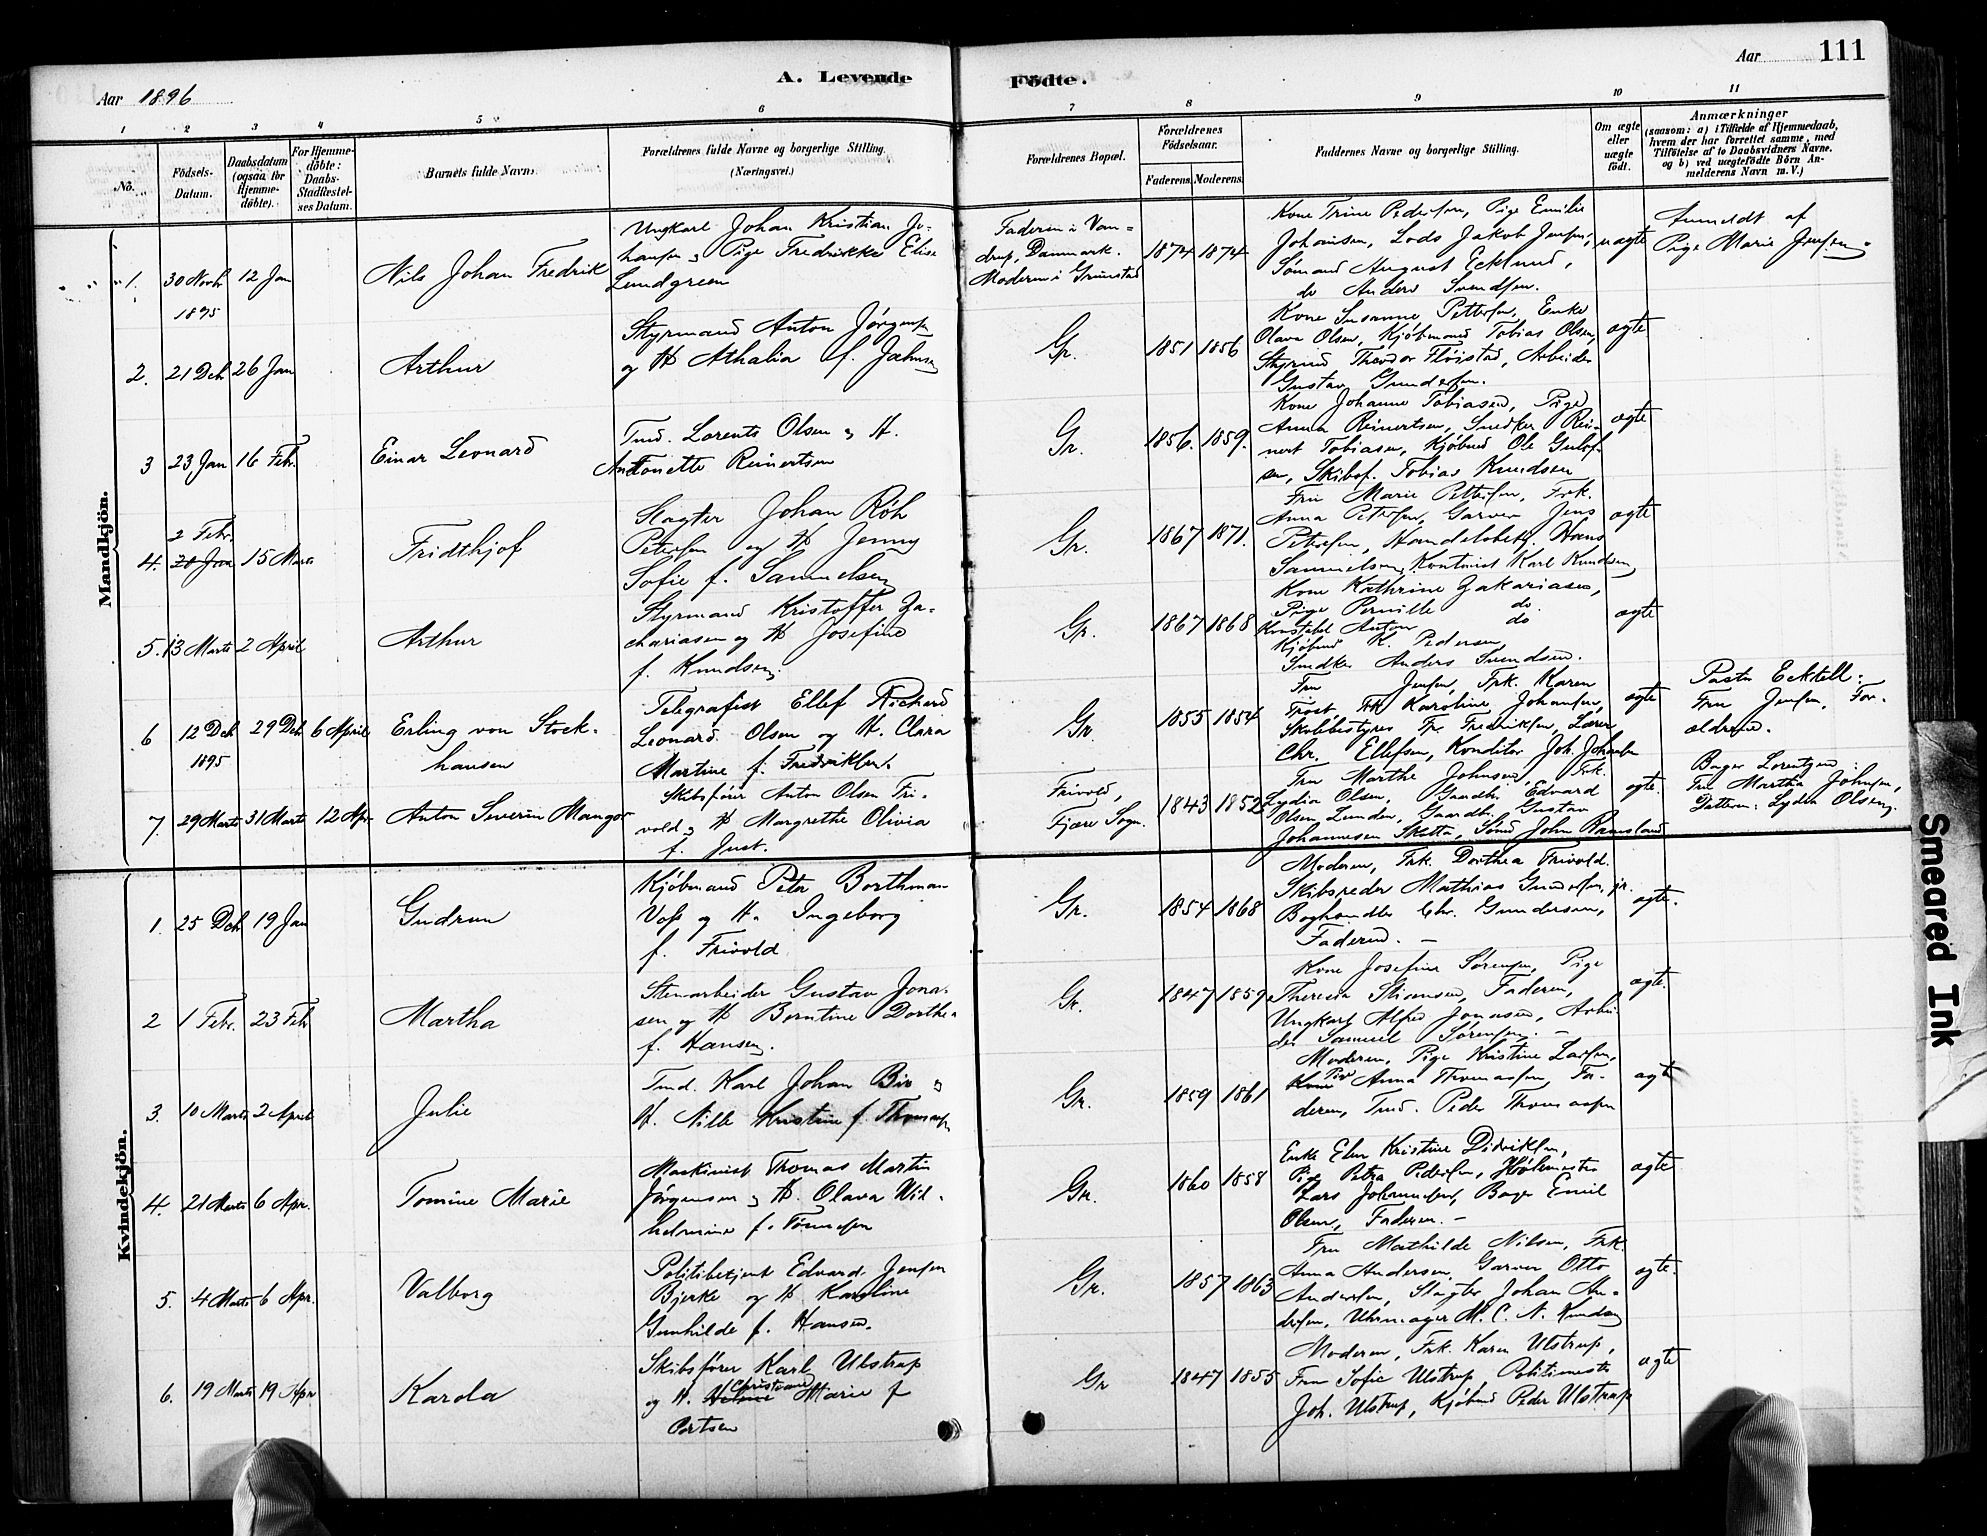 Aar 1896
A. Levende
Födte.
Aar
111
1 2 3 4 5 6 7 8 9 10 11
No.
Födsels-
Datum.
Daabsdatum
(ogsaa for
Hjemme-
döbte).
For Hjemme-
döbte:
Daabs-
Stadfæstel-
ses Datum.
Barnets fulde Navn.
Forældrenes fulde Navne og borgerlige Stilling.
(Næringsvei.)
Forældrenes Bopæl.
Forældrenes
Födselsaar.
Faderens. Moderens.
Faddernes Navne og borgerlige Stilling.
Om ægte
eller
uægte
födt.
Anmærkninger
(saasom: a) i Tilfælde af Hjemmedaab,
hvem der har forrettet samme, med
Tilföielse af to Daabsvidners Navne.
og b) ved uægtefödte Börn An-
melderens Navn m. V.)
Mandkjön.
1. 30 Novbr 1895
12 Jan
Nils Johan Fredrik
Ungkarl Johan Kristian Jo-
hansen og Pige Fredrikke Elise
Lundgreen
Faderen i Vam-
drup, Danmark.
Moderen i Grimstad
1874 1874
Kone Trine Pedersen, Pige Emilie
Johansen, Lods Jakob Jensen,
Sømand August Ecklund,
do Anders Svendsen.
uægte
Anmeldt af
Pige Marie Jensen
2. 21 Deb 26 Jan
Arthur
Styrmand Anton Jørgensen
og H Athalia f.
Gr.
1851 1856
Kone Susanne Pettersen, Enke
Olava Olsen, Kjøbmand Tobias Olsen,
Styrmd Theodor Fløistad, Arbeider
Gustav Gundersen.
ægte
3 23 Jan 16 Feb.
Einar Leonard
Tmd. Lorents Olsen og H.
Antonette Reinertsen
Gr.
1856. 1859.
Kone Johanne Tobiasen, Pige
Anna Reinertsen, Snedker Rei-
nert Tobiasen, Kjøbmd Ole Gulof-
sen, Skibsf. Tobias Knudsen
ægte
4. 2 Febr.
20 Jan 15 Marts
Fridthjof
Slagter Johan Röh
Petersen og H Jenny
Sofie f. Samuelsen
Gr.
1867 1871.
Fru Marie Pettersen, Frk.
Anna Petersen, Garver Jens
Petersen, Handelsbetj. Hans
Samuelsen, Kontorist Karl Knudsen
ægte
5. 13 Marts 2 April
Arthur
Styrmand Kristoffer Za-
chariasen og H Josefine
f. Knudsen.
Gr.
1867 1868
Kone Kathrine Zakariasen,
Pige Pernille do
Konstabel Anton do
Kjøbmd K. Pedersen
Snedker Anders Svendsen.
ægte
6 12 Deb 1895
29 Deb 6 April
Erling von Stock-
hausen
Telegrafist Ellef Richard
Leonard Olsen og H. Clara
Martine f. Fredriksen.
Gr.
1855 1854
Fru Jensen, Frk. Karen
Trost Frk Karoline Johansen,
Skolebestyrer Fr. Fredriksen, Lærer
Chr. Ellefsen, Konditor Joh. Johansen
ægte
Pastor Ecktell:
Fru Jensen, For-
ældrene.
7. 29 Marts 31 Marts 12 Apr.
Anton Severin Mangor
Skibsfører Anton Olsen Fri-
vold og H Margrethe Olivia
f. Just.
Frivold,
Fjære Sogn.
1843 1852
Fru Marthe Johnsen, Frk.
Lydia Olsen, Gaardbr. Edvard
Olsen Lunden, Gaardbr. Gustav
Johannesen Sketta, Smd John Ramsland
ægte.
Bager Lorentzen:
Fru Martha Johnsen,
Datteren: Lydia Olsen.
Kvindekjön.
1. 25 Deb 19 Jan
Gudrun
Kjøbmand Peter Borthman
Voss og H. Ingeborg
f. Frivold
Gr.
1854 1868
Moderen, Frk. Dorthea Frivold.
Skibsreder Mathias Gundersen jr.
Boghandler Chr. Gundersen,
Faderen. –
ægte.
2 1 Febr. 23 Feb
Martha
Stenarbeider Gustav Jona-
sen og H Berntine Dorthea
f. Hansen.
Gr.
1847 1859
Kone Josefine Sørensen, Pige
Theresia Stiansen, Faderen,
Ungkarl Alfred Jonassen, Arbei-
der Samuel Sørensen. –
ægte.
3. 10 Marts 2 April
Julie
Tmd. Karl Johan Bie og
H. Nille Kristine f. Thomassen
Gr.
1859 1861
Moderen, Pige Kristine Larsen,
Kone Pige Anna Thomassen, Fa-
deren, Tmd. Peder Thomassen
ægte
4. 21 Marts 6 Apr.
Tomine Marie
Maskinist Thomas Martin
Jørgensen og H. Olava Wil-
helmine f. Tønnesen
Gr.
1860 1858
Enke Elen Kristine Didriksen,
Pige Petra Pedersen,
Lars Johannesen, Bager Emil
Olsen, Faderen. –
ægte
5. 4 Marts 6 Apr.
Valborg
Politibetjent Edvard Jensen
Bjerke og H Karoline
Gunhilde f. Hansen.
Gr.
1857 1863
Fru Mathilde Nilsen, Frk.
Anna Andersen, Garver Otto
Andersen, Slagter Johan An-
dersen, Uhrmager M. C. N. Knudsen
ægte.
6. 19 Marts 19 Apr
Karola
Skibsfører Karl Ulstrup
Christiane
og H. Marie f
Gr
1847 1855
Moderen, Frk. Karen Ulstrup,
Fru Sofie Ulstrup, Politimester
Joh. Ulstrup, Kjøbmd Peder Ulstrup
ægte
Smeared Ink